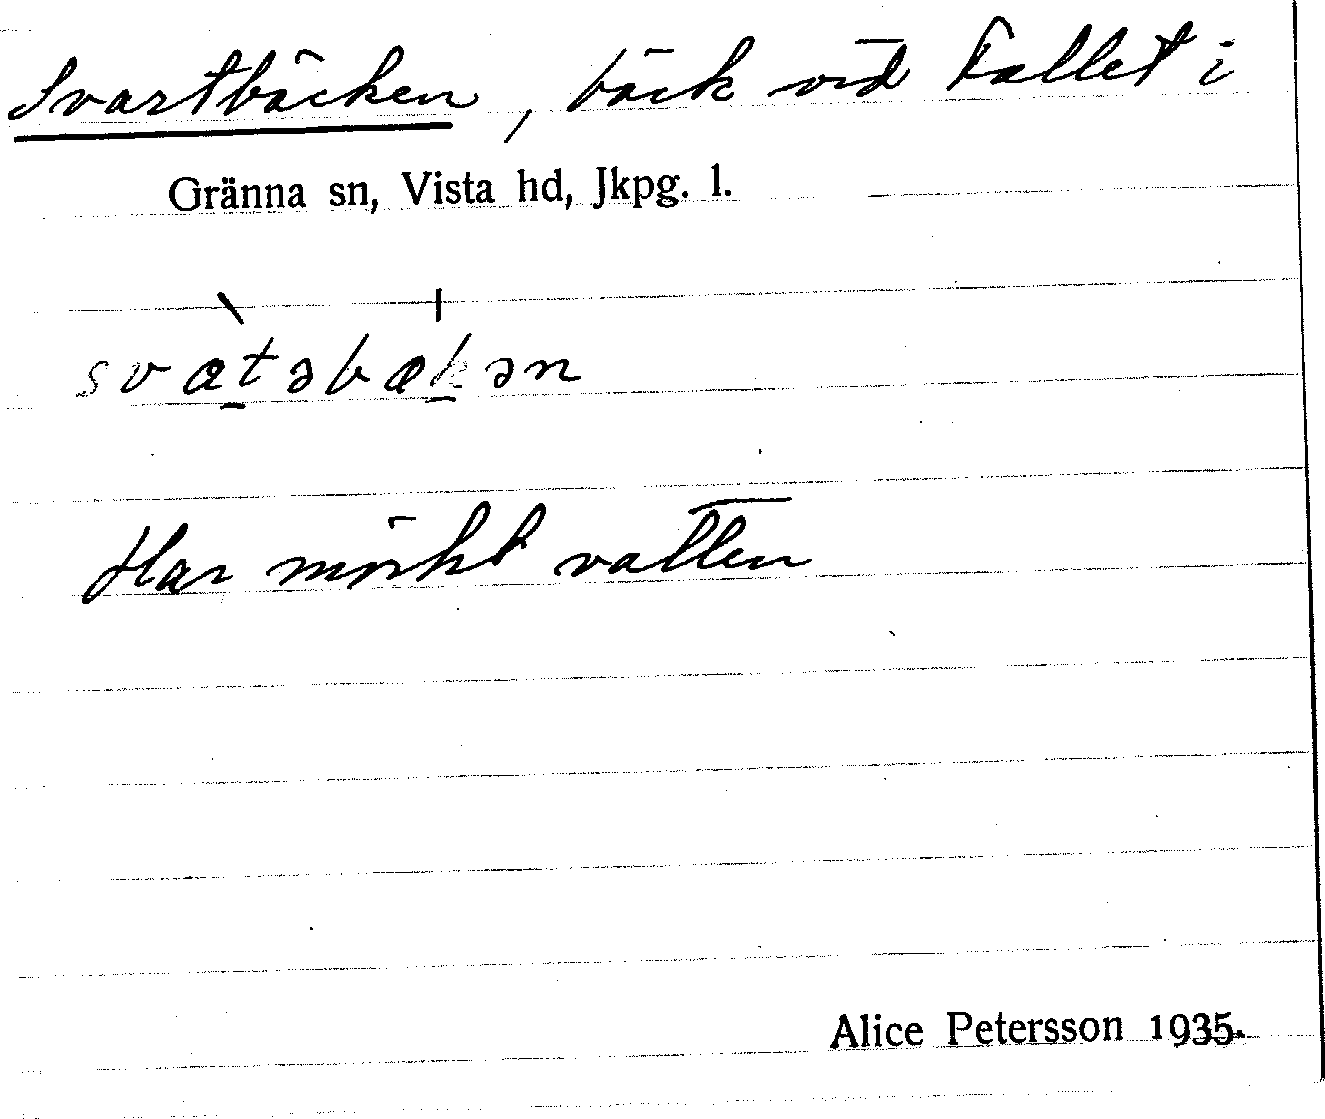 Svartbäcken, bäck vid Fallet i
Gränna sn, Vista hd, Jkpg. l.
svatəbækən
Har mörkt vatten
Alice Petersson 1935.